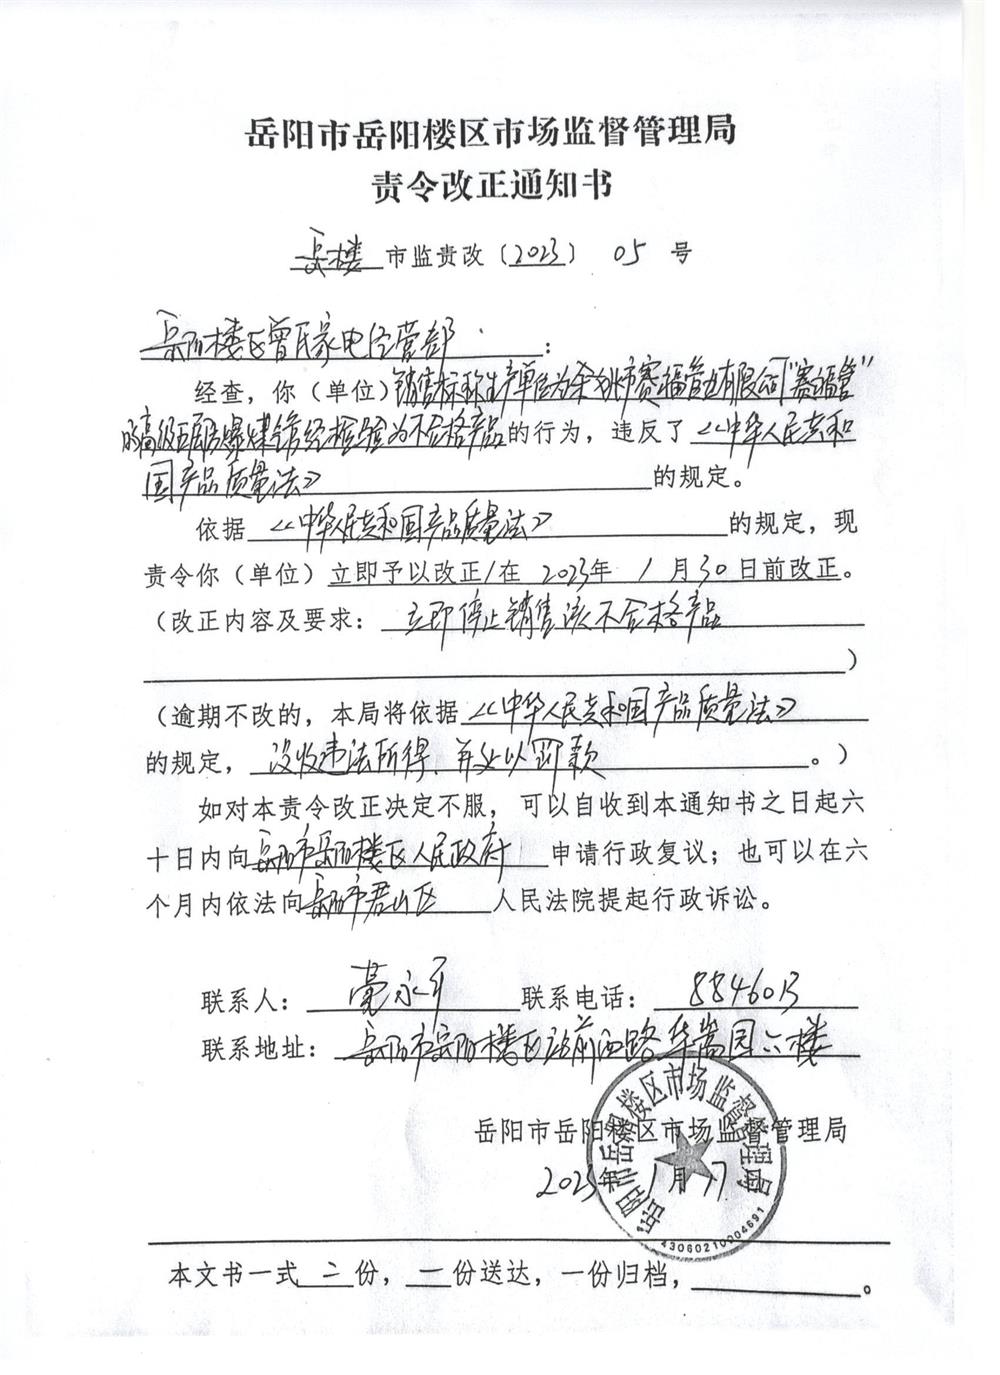 岳阳市岳阳楼区市场监督管理局
责令改正通知书
岳楼 市监责改〔2023〕 05 号
岳阳楼区曾氏家电经营部 :
经查，你（单位）销售标称生产单位为余姚市赛福管业有限公司"赛福管"
的高级防爆煤管经检验为不合格产品的行为，违反了《中华人民共和
国产品质量法》 的规定。
依据《中华人民共和国产品质量法》 的规定，现
责令你（单位）立即予以改正/在 2023年 1 月 30 日前改正。
（改正内容及要求： 立即停止销售该不合格产品
）
（逾期不改的，本局将依据《中华人民共和国产品质量法》
的规定， 没收违法所得、并处以罚款 。）
如对本责令改正决定不服，可以自收到本通知书之日起六
十日内向岳阳市岳阳楼区人民政府 申请行政复议；也可以在六
个月内依法向岳阳市君山区 人民法院提起行政诉讼。
联系人： 永平 联系电话： 8846013
联系地址： 岳阳市岳阳楼区站前西路华嵩园六楼
岳阳市岳阳楼区市场监督管理局
2023年 1月 17
岳阳市岳阳楼区市场监督管理局
43060210004691
本文书一式 二 份， 一 份送达，一份归档， 。